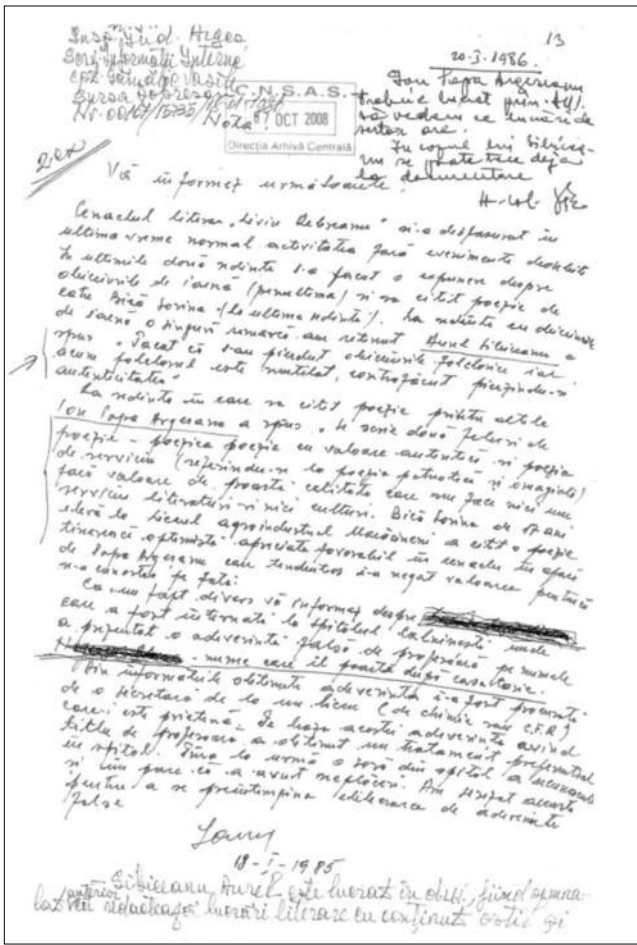 13
Insp. Jud. Argeș
Serv. Informații Interne
Vasile
Sursa
Nr. 00167/
Nota
C.N.S.A.S.
07 OCT 2008
Direcția Arhivă Centrală
20.I.1986.
Ion Popa Argeșeanu
trebuie lucrat prin
să vedem ce
are.
În cazul lui Sibicea-
nu se poate trece deja
la documentare
Vă informez următoarele:
Cenaclul literar „Liviu Rebreanu" și-a desfășurat în
ultima vreme normal activitatea fără evenimente deosebite
În ultimile două ședințe s-a făcut o expunere despre
obiceiurile de iarnă (penultima) și s-a citit poezie de
către Bică Sorina (la ultima ședință). La ședința cu obiceiurile
de iarnă o singură remarcă am reținut Aurel Sibiceanu a
spus „Păcat că s-au pierdut obiceiurile folclorice iar
acum folclorul este mutilat, contrafăcut pierzîndu-și
autenticitatea"
La ședința în care s-a citit poezie printre altele
Ion Popa Argeșeanu a spus „Se scrie două feluri de
poezie - poezia poezie cu valoare autentică și poezia
de serviciu (referindu-se la poezia patriotică și omagială)
fără valoare de proastă calitate care nu face nici un
serviciu literaturii și nici culturii. Bică Sorina de 17 ani
elevă la liceul agroindustrial Mărăcineni a citit o poezie
tinerească optimistă apreciată favorabil în cenaclu în afară
de Popa Argeșeanu care tendențios i-a negat valoarea pentru că
n-a cunoscut pe fată.
Ca un fapt divers vă informez despre
care a fost internată la spitalul Călinești unde
a prezentat o adeverință falsă de profesoară pe numele
- nume care îl poartă după căsătorie.
Din informațiile obținute adeverința i-a fost procurată
de o secretară de la un liceu (de chimie sau C.F.R.)
care-i este prietenă. Pe baza acestei adeverințe avînd
titlu de profesoară a obținut un tratament preferențial
în spital. Pînă la urmă o soră din spital a
și îmi pare că a avut neplăceri. Am sesizat aceasta
pentru a se preîntîmpina eliberarea de adeverințe
false
18-I-1985
Sibiceanu Aurel este lucrat în d.u.i., fiind semna-
lat anterior că redactează lucrări literare cu conținut ostil și